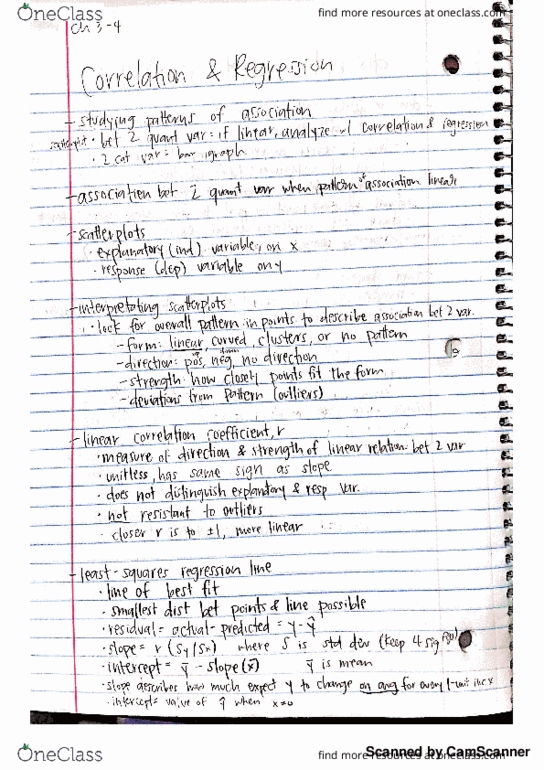 OneClass
find more resources at oneclass.com
Ch 3-4
Correlation & Regression
- studying patterns of association
scatterplot • bet 2 quant var: if linear, analyze w/ correlation & regression
• 2 cat var: bar graph
- association bet 2 quant var when pattern of association linear
- scatterplots
• explanatory (ind) variable on x
• response (dep) variable on y
- interpretating scatterplots
• look for overall pattern in points to describe association bet 2 var.
- form: linear, curved, clusters, or no pattern
- direction: pos, neg, no direction
up down
- strength: how closely points fit the form
- deviations from pattern (outliers)
- linear correlation coefficient, r
• measure of direction & strength of linear relation. bet 2 var
• unitless, has same sign as slope
• does not distinguish explanatory & resp var.
• not resistant to outliers
• closer r is to ±1, more linear
- least-squares regression line
• line of best fit
• smallest dist bet points & line possible
• residual = actual - predicted = y - ŷ
• slope = r (Sy/Sx) where S is std dev (keep 4 sig figs)
• intercept = ȳ - slope(x̄) ȳ is mean
• slope describes how much expect y to change on avg for every 1-unit inc x
• intercept: value of ŷ when x=0
OneClass
find more resources at oneclass.com
Scanned by CamScanner